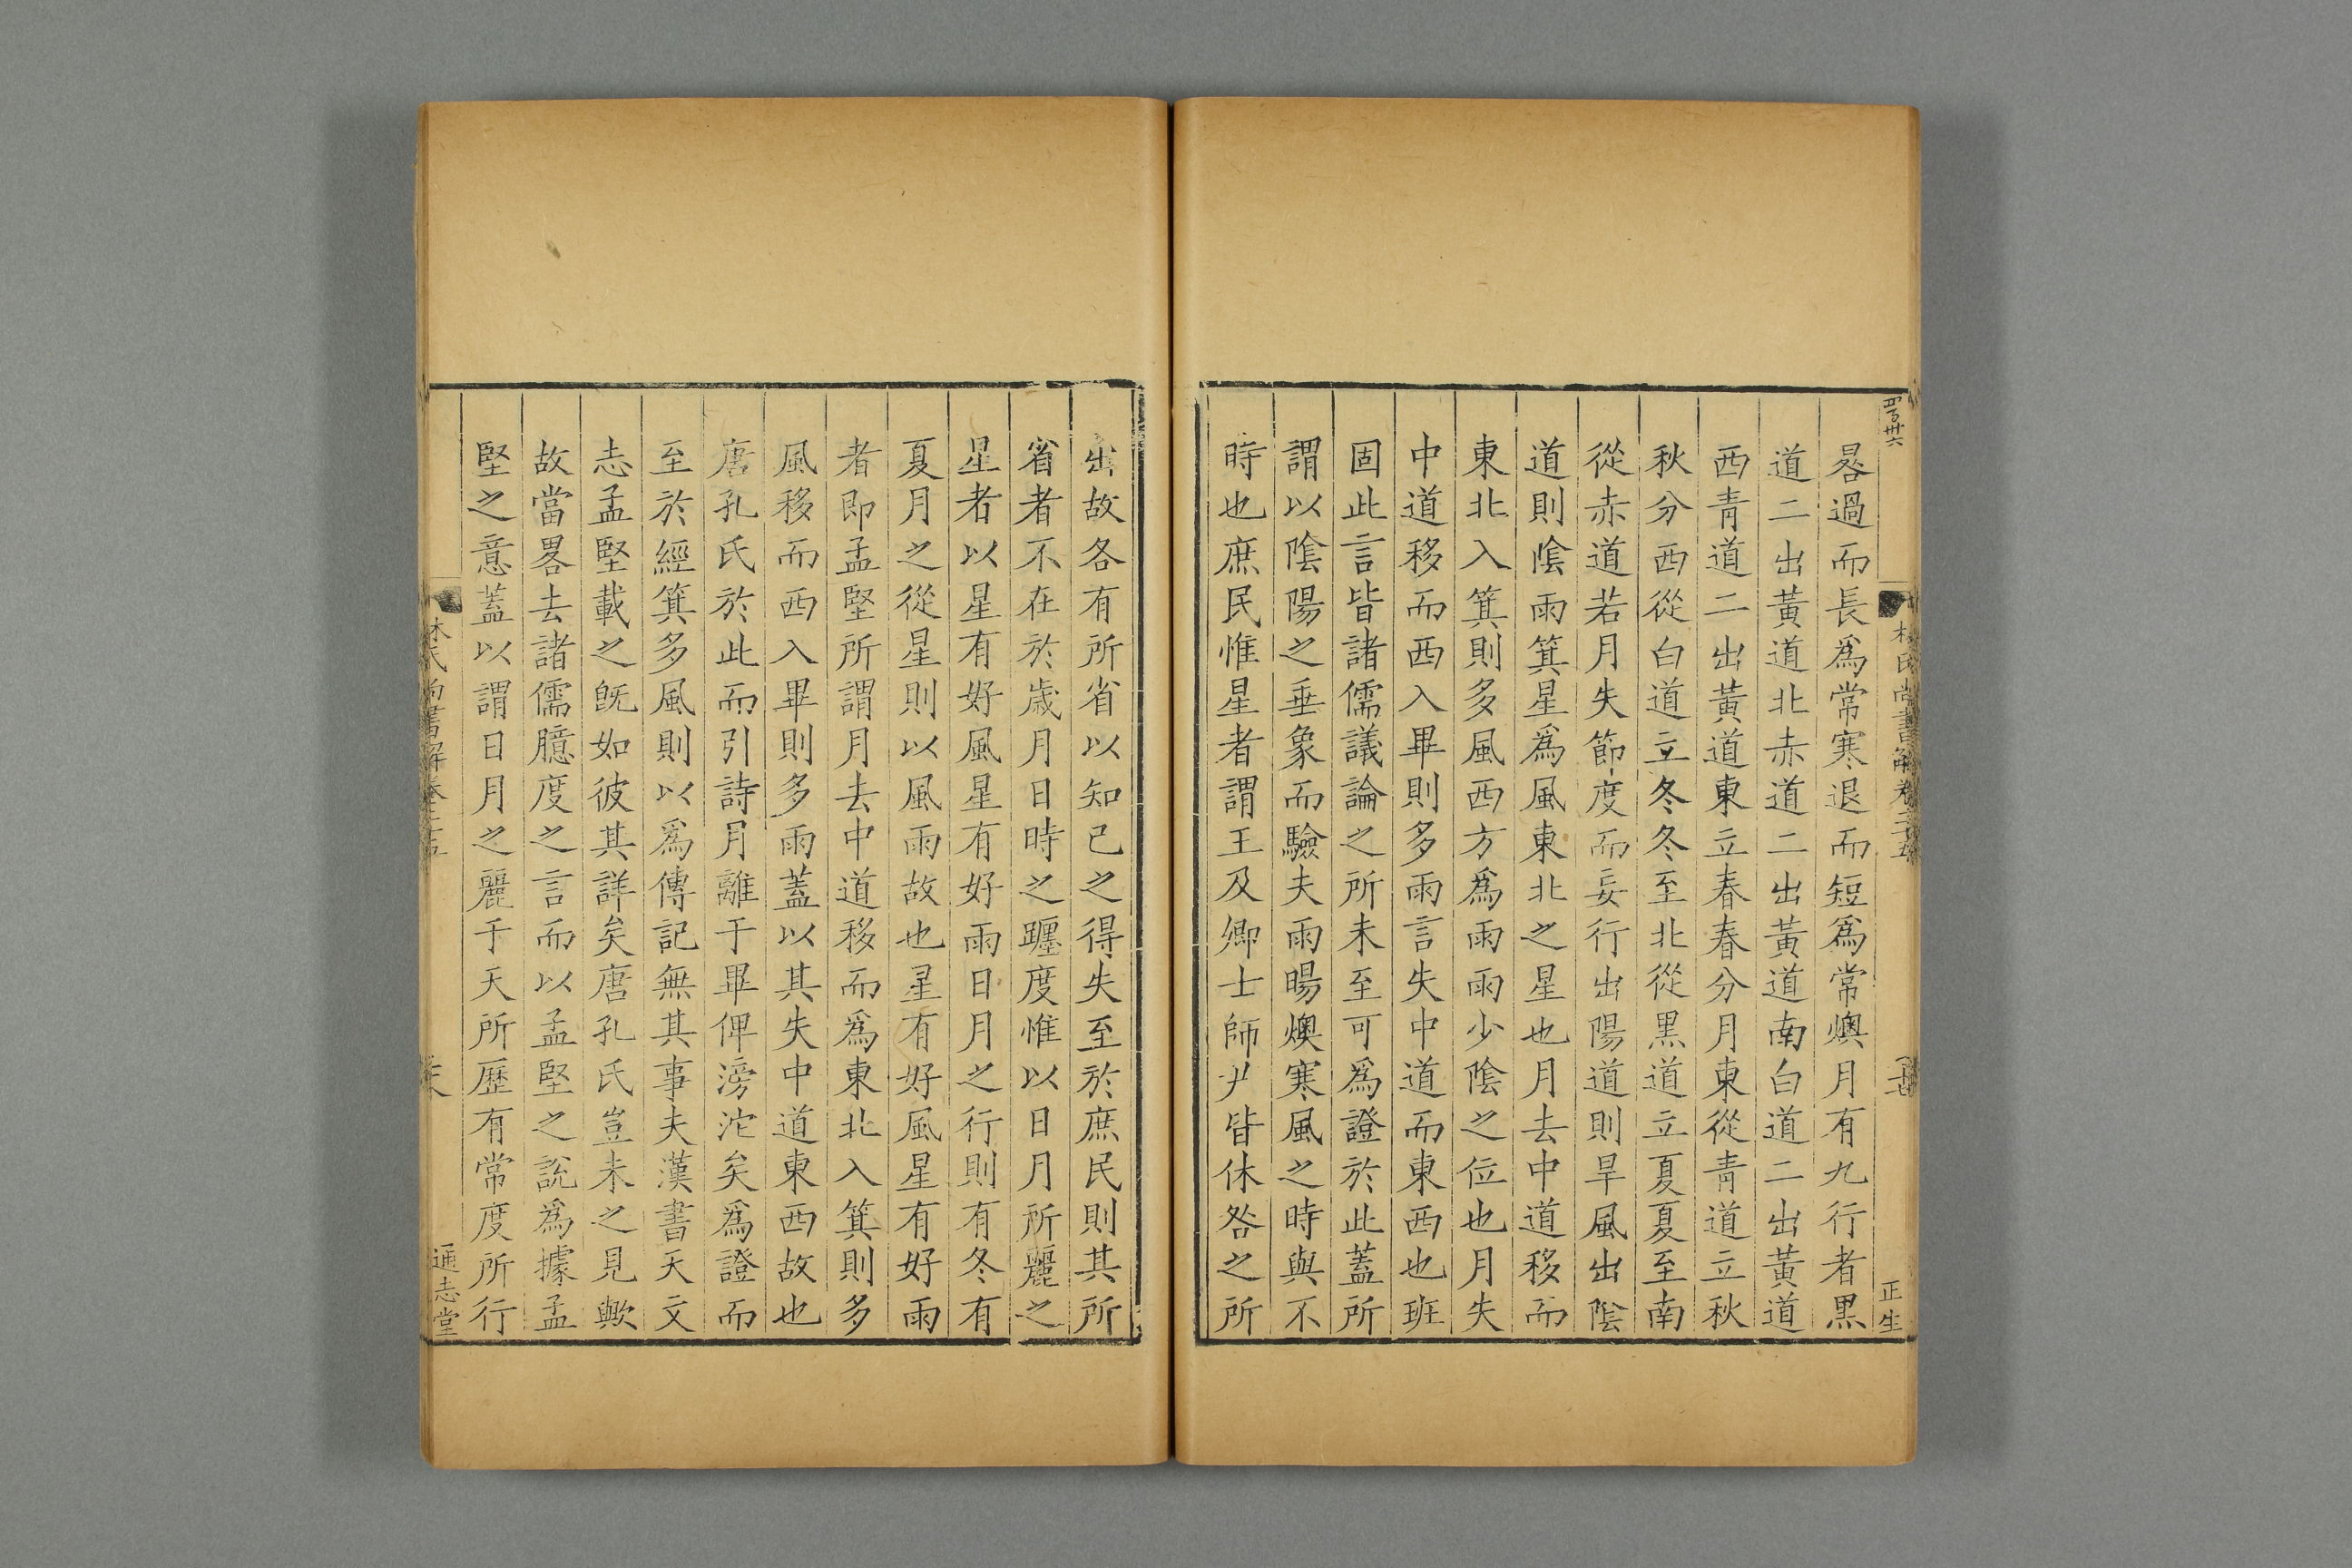 晷過而長爲常寒退而短爲常燠月有九行者黑
道二出黃道北赤道二出黃道南白道二出黃道
西青道二出黃道東立春春分月東從青道立秋
秋分西從白道立冬冬至北從黑道立夏夏至南
從赤道若月失節度而妄行出陽道則旱風出陰
道則陰雨箕星爲風東北之星也月去中道移而
東北入箕則多風西方爲雨雨少陰之位也月失
中道移而西入畢則多雨言失中道而東西也班
固此言皆諸儒議論之所未至可爲證於此蓋所
謂以陰陽之垂象而驗夫雨暘燠寒風之時與不
時也庶民惟星者謂王及卿士師尹皆休咎之所
正生
出故各有所省以知已之得失至於庶民則其所
省者不在於歲月日時之躔度惟以日月所麗之
星者以星有好風星有好雨日月之行則有冬有
夏月之從星則以風雨故也星有好風星有好雨
者即孟堅所謂月去中道移而爲東北入箕則多
風移而西入畢則多雨蓋以其失中道東西故也
唐孔氏於此而引詩月離于畢俾滂沱矣爲證而
至於經箕多風則以爲傳記無其事夫漢書天文
志孟堅載之旣如彼其詳矣唐孔氏豈未之見歟
故當畧去諸儒臆度之言而以孟堅之說爲據孟
堅之意蓋以謂日月之麗于天所歷有常度所行
林氏尚書解卷二十五
通志堂